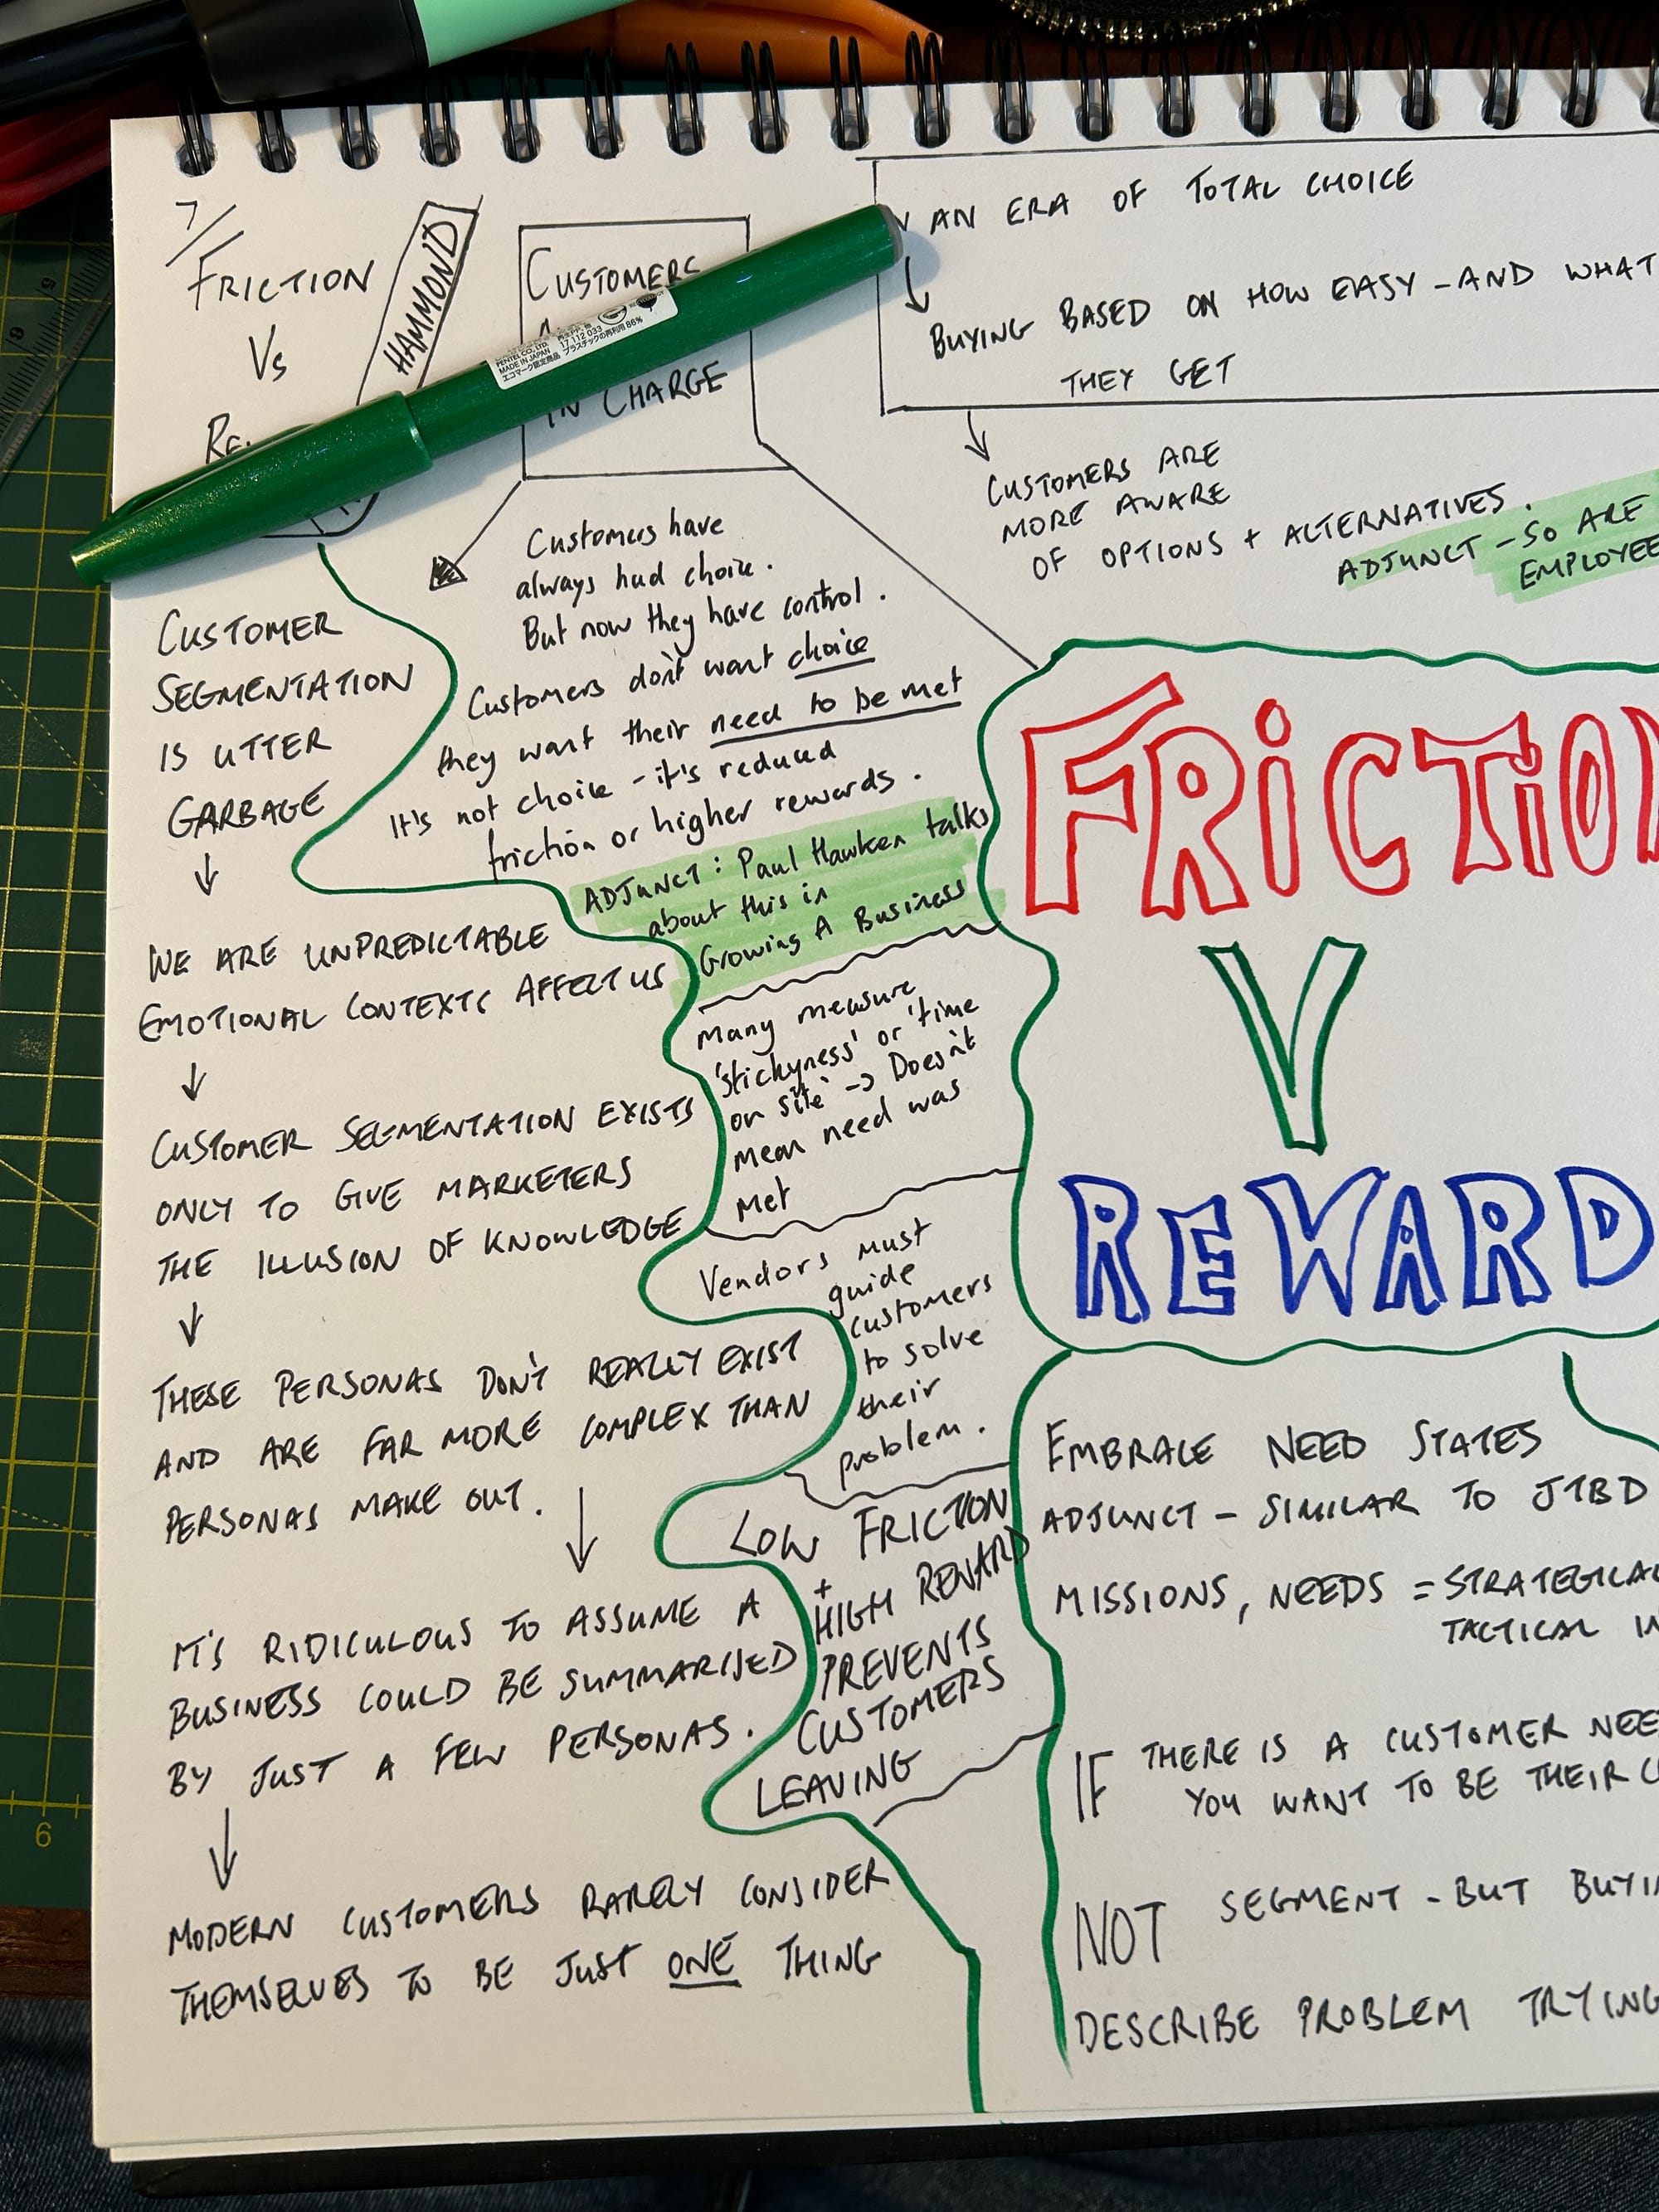 7/
FRICTION
Vs
HAMMOND
CUSTOMERS
IN CHARGE
AN ERA OF TOTAL CHOICE
BUYING BASED ON HOW EASY - AND WHAT
THEY GET
CUSTOMERS ARE
MORE AWARE
OF OPTIONS + ALTERNATIVES.
ADJUNCT - SO ARE
EMPLOYEE
PENTEL CO., LTD.
MADE IN JAPAN
エコマーク認定商品
17 112 033
プラスチックの再利用 86%
Customers have
always had choice.
But now they have control.
Customers don't want choice
they want their need to be met
It's not choice - it's reduced
friction or higher rewards.
ADJUNCT: Paul Hawken talks
about this in
Growing A Business
Many measure
'stickyness' or 'time
on site' -> Doesn't
mean need was
met
Vendors must
guide
customers
to solve
their
problem.
LOW FRICTION
+
HIGH REWARD
PREVENTS
CUSTOMERS
LEAVING
CUSTOMER
SEGMENTATION
IS UTTER
GARBAGE
WE ARE UNPREDICTABLE
EMOTIONAL CONTEXTS AFFECT US
CUSTOMER SEGMENTATION EXISTS
ONLY TO GIVE MARKETERS
THE ILLUSION OF KNOWLEDGE
THESE PERSONAS DON'T REALLY EXIST
AND ARE FAR MORE COMPLEX THAN
PERSONAS MAKE OUT.
IT'S RIDICULOUS TO ASSUME A
BUSINESS COULD BE SUMMARISED
BY JUST A FEW PERSONAS.
MODERN CUSTOMERS RARELY CONSIDER
THEMSELVES TO BE JUST ONE THING
FRICTION
V
REWARD
EMBRACE NEED STATES
ADJUNCT - SIMILAR TO JTBD
MISSIONS, NEEDS = STRATEGICAL
TACTICAL IN
IF THERE IS A CUSTOMER NEE
YOU WANT TO BE THEIR
NOT SEGMENT - BUT BUYI
DESCRIBE PROBLEM TRYING
6